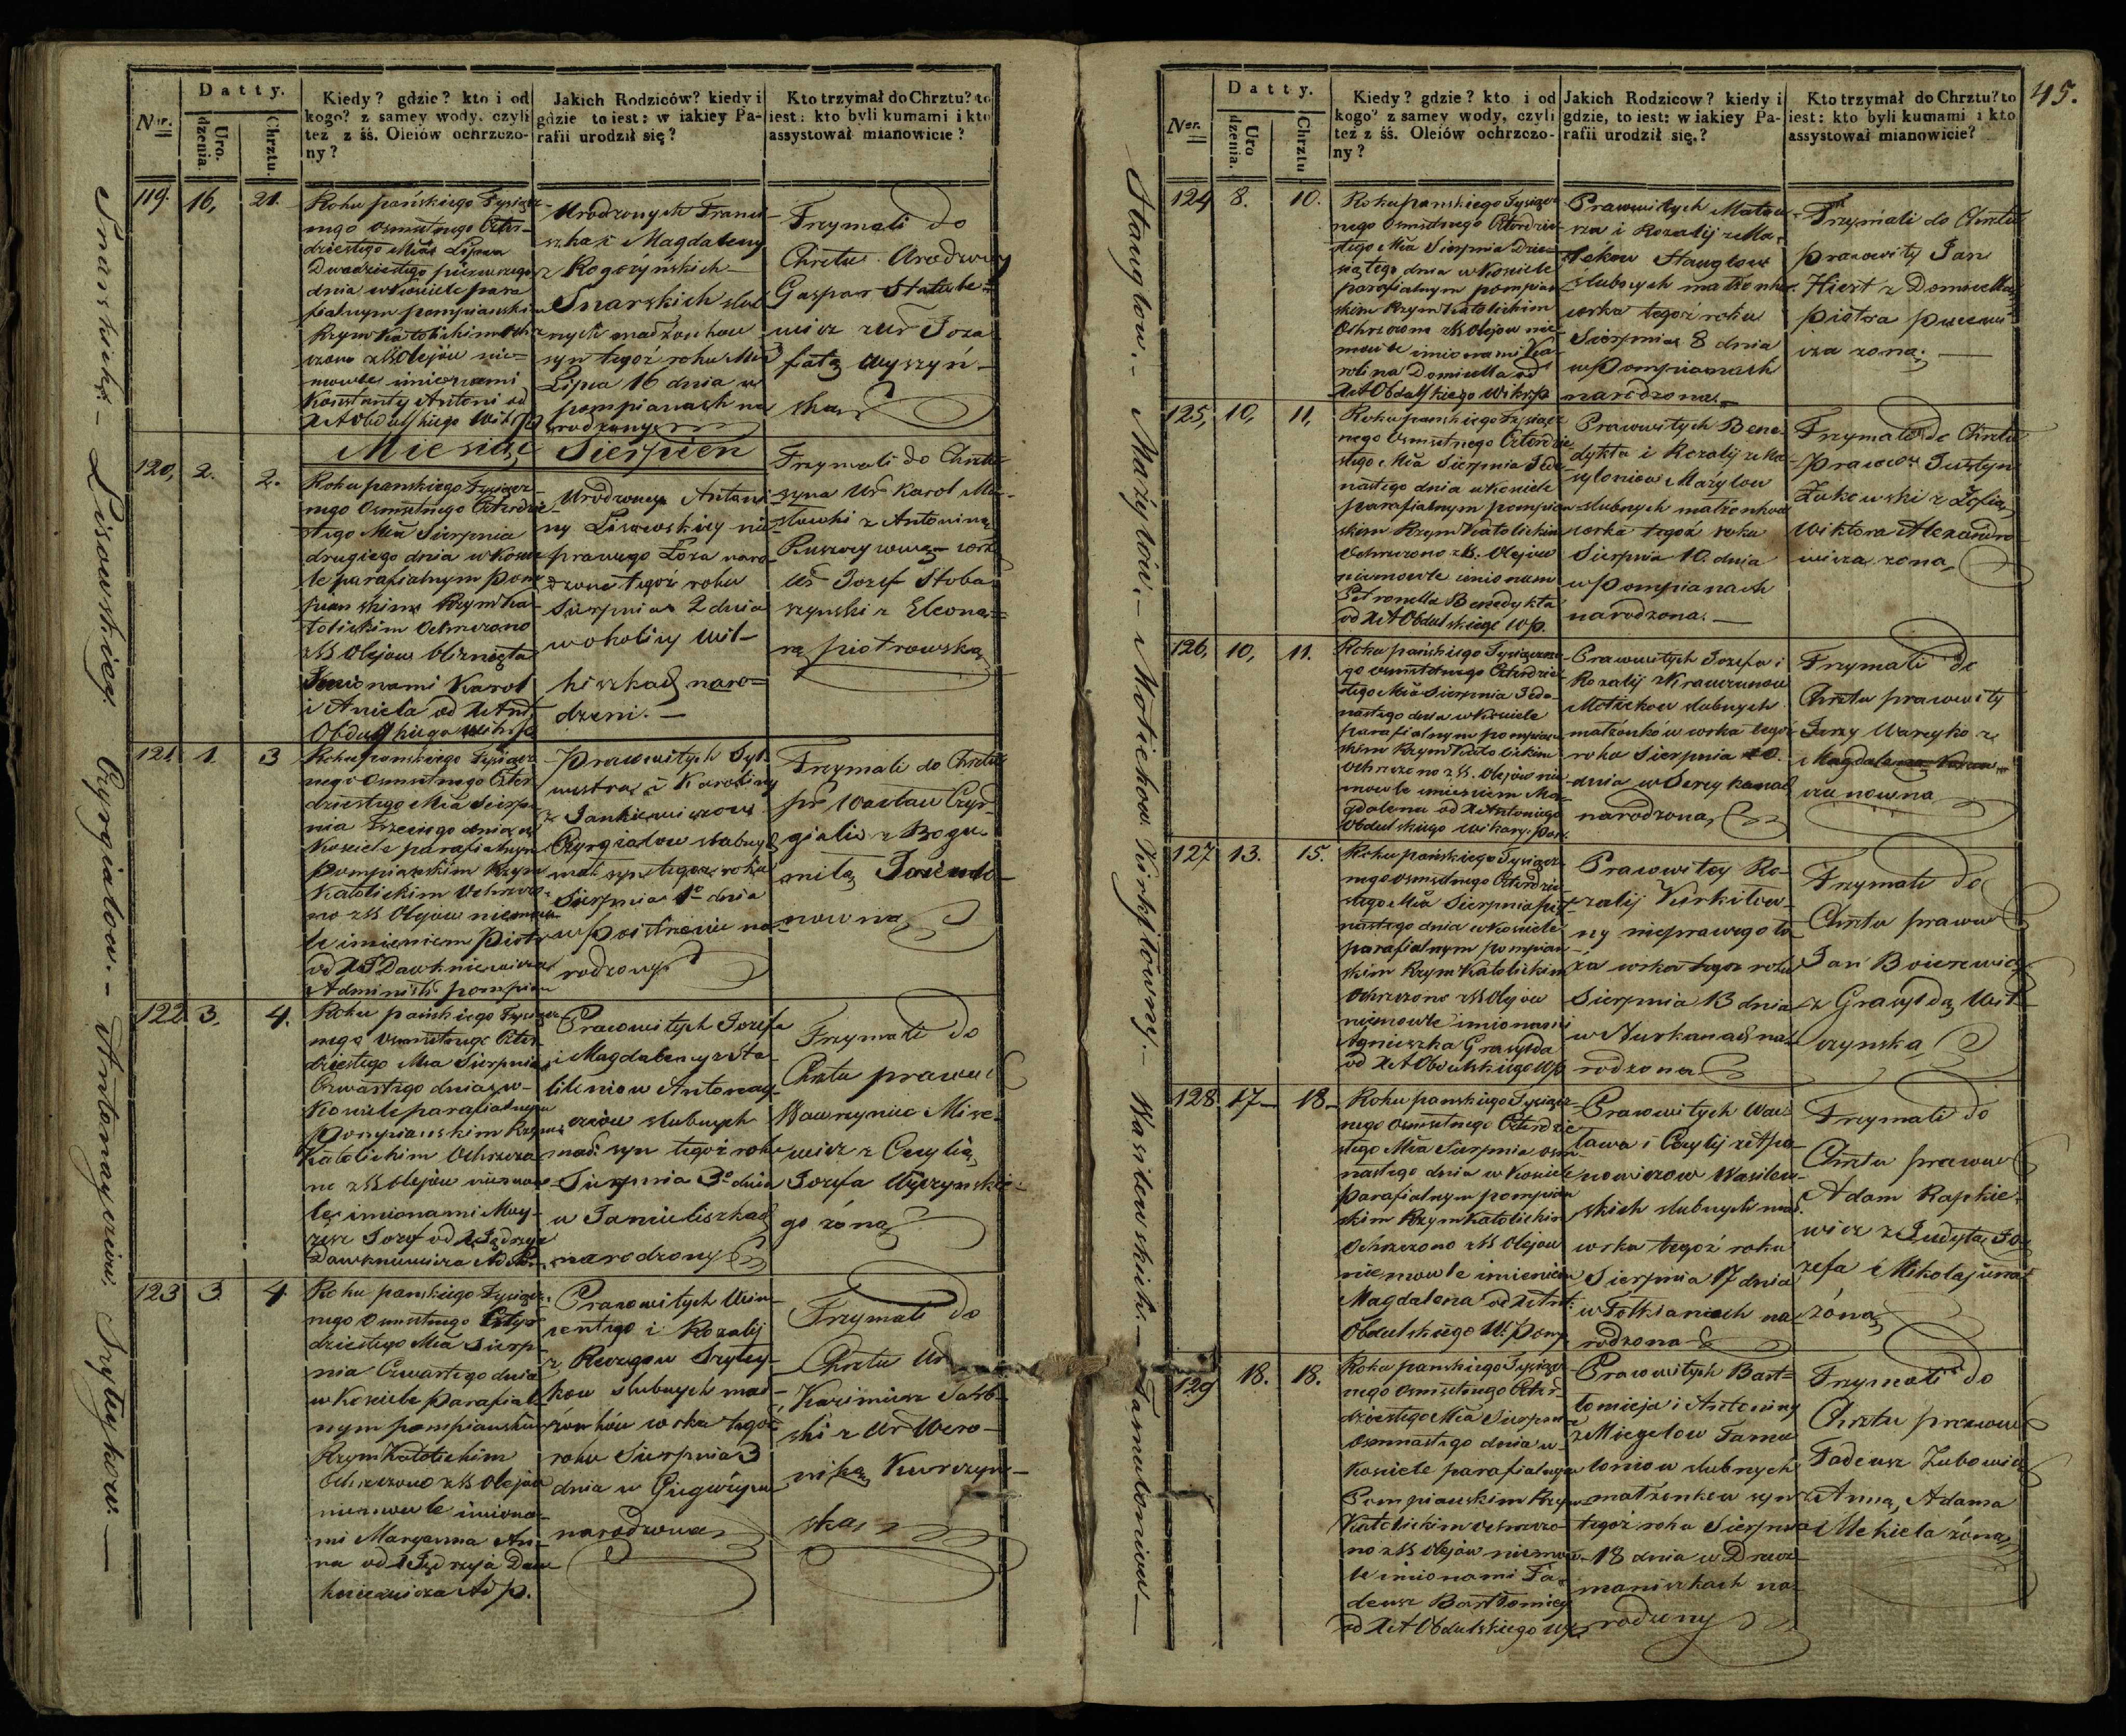 Nr.
Datty.
Uro.
dzenia.
Chrztu.
Kiedy? gdzie? kto i od
kogo? z samey wody, czyli
też z śś. Oleiów ochrzczo-
ny?
Jakich Rodziców? kiedy i
gdzie to iest: w iakiey Pa-
rafii urodził się?
Kto trzymał do Chrztu? to
iest: kto byli kumami i kto
assystował mianowicie?
119. 16, 21.
Roku pańskiego Tysiącz-
nego osmsetnego Czter-
dziestego Mca Lipca
Dwadziestego pierwszego
dnia w Kosciele para
fialnym pompianskim
Rzym Katolickim Och
rzczono z SS Olejów nie=
mowle imionami
Konstanty Antoni od
X A Obdulskiego Wik
Urodzonych Franci-
szka i Magdaleny
z Rogożyńskich
Snarskich slub
nych małżonkow
syn tegoż roku Mca
Lipca 16 dnia w
pompianach na
rodzony
Trzymali do
Chrztu Urodzony
Gaspar
wicz z Ur Joza
fatą Wyszyń-
ską
Miesiąc Sierpien
120, 2. 2.
Roku panskiego Tysiącz-
nego Osmsetnego Czterdzie-
stego Mca Sierpnia
drugiego dnia w Koscie
le parafialnym pom
pianskim Rzym Ka
tolickim Ochrzczono
z SS Olejow bliznięta
Imionami Karol
i Aniela od X Ant
Obdulskiego Wik
Urodzoney Antoni
ny Lisowskiey nie
prawego Łoża naro
dzone tegoż roku
Sierpnia 2 dnia
w okolicy Wil-
kiszkach naro=
dzeni. —
Trzymali do Chrztu
syna Ur Karol Ma-
słowski z Antoniną
corkę
Ur Jozef Stoba
szynski z Eleono=
rą piotrowską
121 1. 3
Roku panskiego Tysiącz
nego Osmsetnego Czter
dziestego Mca Sierp
nia Trzeciego dnia w
Kosciele parafialnym
Pompianskim Rzym
Katolickim Ochrzczo
no z SS Olejow niemow
le imieniem Piotr
od X J Dawkniewicza
Administr. pompian
Prawowitych Syl
westra i Karoliny
z Jankiewiczow
Czyrgialow slubnych
mał. syn tegoż roku
Sierpnia 1º dnia
w Poistrowiu na
rodzony
Trzymali do Chrztu
pr Wacław Czyr
gialis z Bogu
miłą
nowną
122 3. 4.
Roku pańskiego Tysiącz
nego Osmsetnego Czter
dziestego Mca Sierpnia
Czwartego dnia w
Kosciele parafialnym
Pompianskim Rzym
Katolickim Ochrzczo
no z SS Olejów niemow
lę imionami Moy-
zesz Jozef od X Jędrzeja
Dawkniewicza Ad P.
Prawowitych Jozefa
i Magdaleny z Sta-
Antonay-
ciów slubnych
mał. syn tegoż roku
Sierpnia 3º dnia
w Janieliszkach
narodzony
Trzymali do
Chrztu prawow
Wawrzyniec Mice-
wicz z Cecylią
Jozefa Wyczynskie-
go żóną
123 3. 4
Roku panskiego Tysiącz
nego Osmsetnego Czter
dziestego Mca Sierp
nia Czwartego dnia
w Kosciele Parafial-
nym pompianskim
Rzym Katolickim
Ochrzczono z SS Olejów
niemowle imiona-
mi Maryanna An-
na od X Jędrzeja Daw
kniewicza Ad p.
Prawowitych Win-
centego i Rozalij
Szyley-
kow slubnych mał
żonków corka tegoż
roku Sierpnia 3
dnia w
narodzona
Trzymali do
Chrztu Ur
Kazimierz
ski z Ur Wero-
niką
ską
Snarskich. — Lisowskiey. Czyrgialow. — Antonayciow. Szyleykow. —
45.
Ner.
Datty.
Uro
dzenia.
Chrztu
Kiedy? gdzie? kto i od
kogo? z samey wody, czyli
też z śś. Oleiów ochrzczo-
ny?
Jakich Rodzicow? kiedy i
gdzie, to iest: w iakiey Pa-
rafii urodził się.?
Kto trzymał do Chrztu? to
iest: kto byli kumami i kto
assystował mianowicie?
124 8. 10.
Roku panskiego Tysiącz
nego Osmsetnego Czterdzie-
stego Mca Sierpnia Dzie-
siątego dnia w Kosciele
parafialnym pompian
skim Rzym Katolickim
Ochrzczono z SS Olejow nie
mowle imionami Ka-
rolina Domicella od
X A Obdulskiego Wik p
Prawowitych Mateu
sza i Rozalij z
Staugłow
slubnych małżonkow
corka tegoż roku
Sierpnia 8 dnia
w Pompianach
narodzona
Trzymali do Chrztu
prawowity Jan
z Domicellą
piotra
cza zoną. —
125, 10, 11,
Roku panskiego Tysiącz
nego Osmsetnego Czterdzie
stego Mca Sierpnia Jede
nastego dnia w Kosciele
parafialnym pompian
skim Rzym Katolickim
Ochrzczono z SS. Olejow
niemowle imionam
Petronella Benedykta
od X A Obdulskiego W p.
Prawowitych Bene-
dykta i Rozalij z Ka-
Mażylow
slubnych małżonkow
corka tegoż roku
Sierpnia 10. dnia
w Pompianach
narodzona. —
Trzymali do Chrztu
Prawow. Justyn
Żukowski z Zofią
Wiktora Alexandro
wicza zoną
126, 10, 11.
Roku pańskiego Tysiączne
go osmsetnego Czterdzie
stego Mca Sierpnia Jede
nastego dnia w Kosciele
parafialnym pompian
skim Rzym Katolickim
Ochrzczono z SS. Olejów nie
mowle imieniem Ma-
gdalena od X Antoniego
Obdulskiego Wikary. Pom.
Prawowitych Jozefa i
Rozalij z Krawczunow
Motiekow slubnych
małżonków corka tegoż
roku Sierpnia 10.
dnia w
narodzona
Trzymali do
Chrztu prawowity
Jerzy Wareyko z
Magdaleną Kraw
czunowną
127 13. 15.
Roku pańskiego Tysiącz
nego osmsetnego Czterdzie-
stego Mca Sierpnia pięt
nastego dnia w Kosciele
parafialnym pompian
skim Rzym Katolickim
Ochrzczono z SS Olejow
niemowle imionami
Agnieszka Grasylda
od X A Obdulskiego W p
Prawowitey Ro-
zalij Kirkiłow
ny nieprawego ło
ża corka tegoż roku
Sierpnia 13 dnia
w na
rodzona
Trzymali do
Chrztu prawow
Jan
z Grasyldą Wit
czynską
128 17— 18—
Roku pańskiego Tysiącz
nego Osmsetnego Czterdzie
stego Mca Sierpnia osm
nastego dnia w Kosciele
Parafialnym pompian
skim Rzym Katolickim
Ochrzczono z SS Olejow
niemowle imieniem
Magdalena od X Ant:
Obdulskiego W. Pomp
Prawowitych Wac
ława i Cecylij z
Wasilew-
skich slubnych mał.
corka tegoż roku
Sierpnia 17 dnia
w na
rodzona
Trzymali do
Chrztu prawow
Adam Rapkie-
wicz z Judytą Jo
zefa Mikołajuna
żóną
129 18. 18.
Roku panskiego Tysiącz
nego Osmsetnego Czter
dziestego Mca Sierpn
Osmnastego dnia w
Kosciele parafialnym
Pompianskim Rzym
Katolickim ochrzczo-
no z SS Olejów niemow
le imionami Ta-
deusz Bartłomiey
od X A Obdulskiego W p.
Prawowitych Bart=
łomieja i Antoniny
z Miegelow Tamu
loniow slubnych
małżonkow syn
tegoż roku Sierpnia
18 dnia w
maniszkach na
rodzony
Trzymali do
Chrztu prawow
Tadeusz Zubowicz
z Anną, Adama
Mekiela żóną
Stauglow. — Mażylów. — Motiekow. Kirkiłowny. — Wasilewskich. — Tamuloniow —